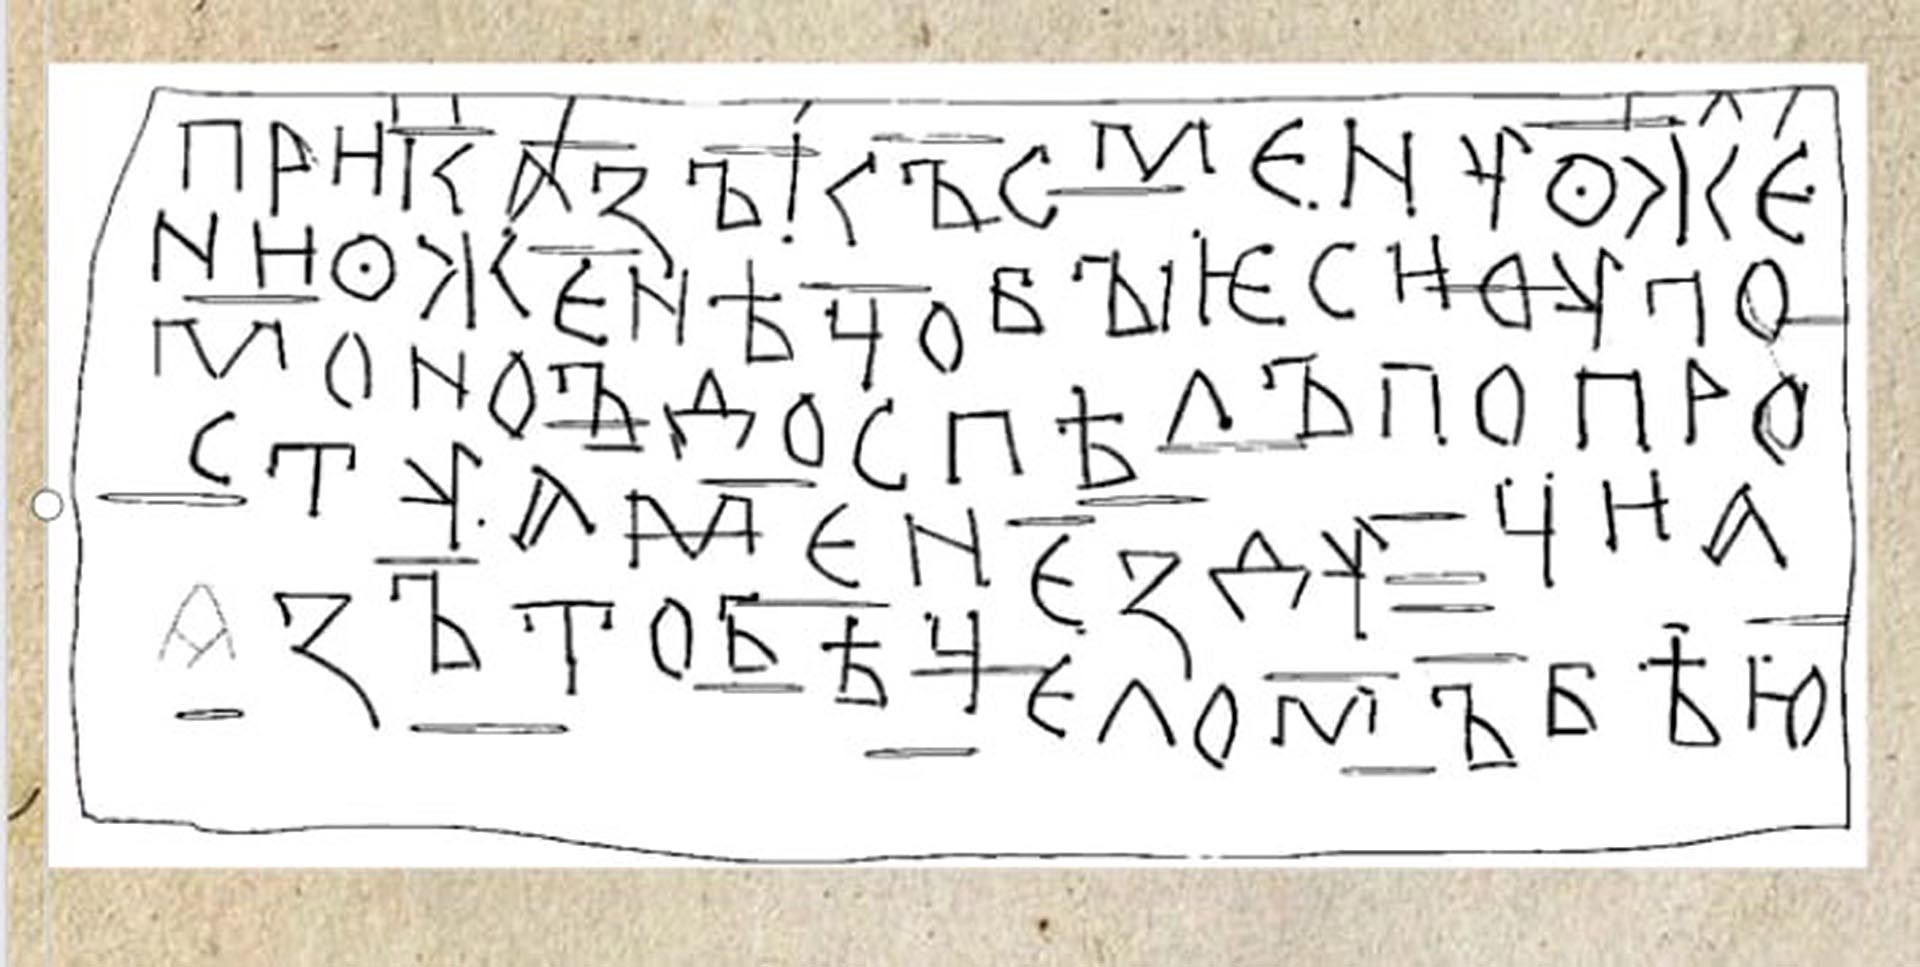 ПРНКАЗЪ ! КЪСМЕNУОЖЕ
NНОЖЕNѢЧОБЪIѤСНОУПО
МОNОЪДОСПѢЛЪПОПРО
СТУ.АМЕNЕЗДУЧНА
АЗЪТОБѢЧЕЛОМЪБѢЮ